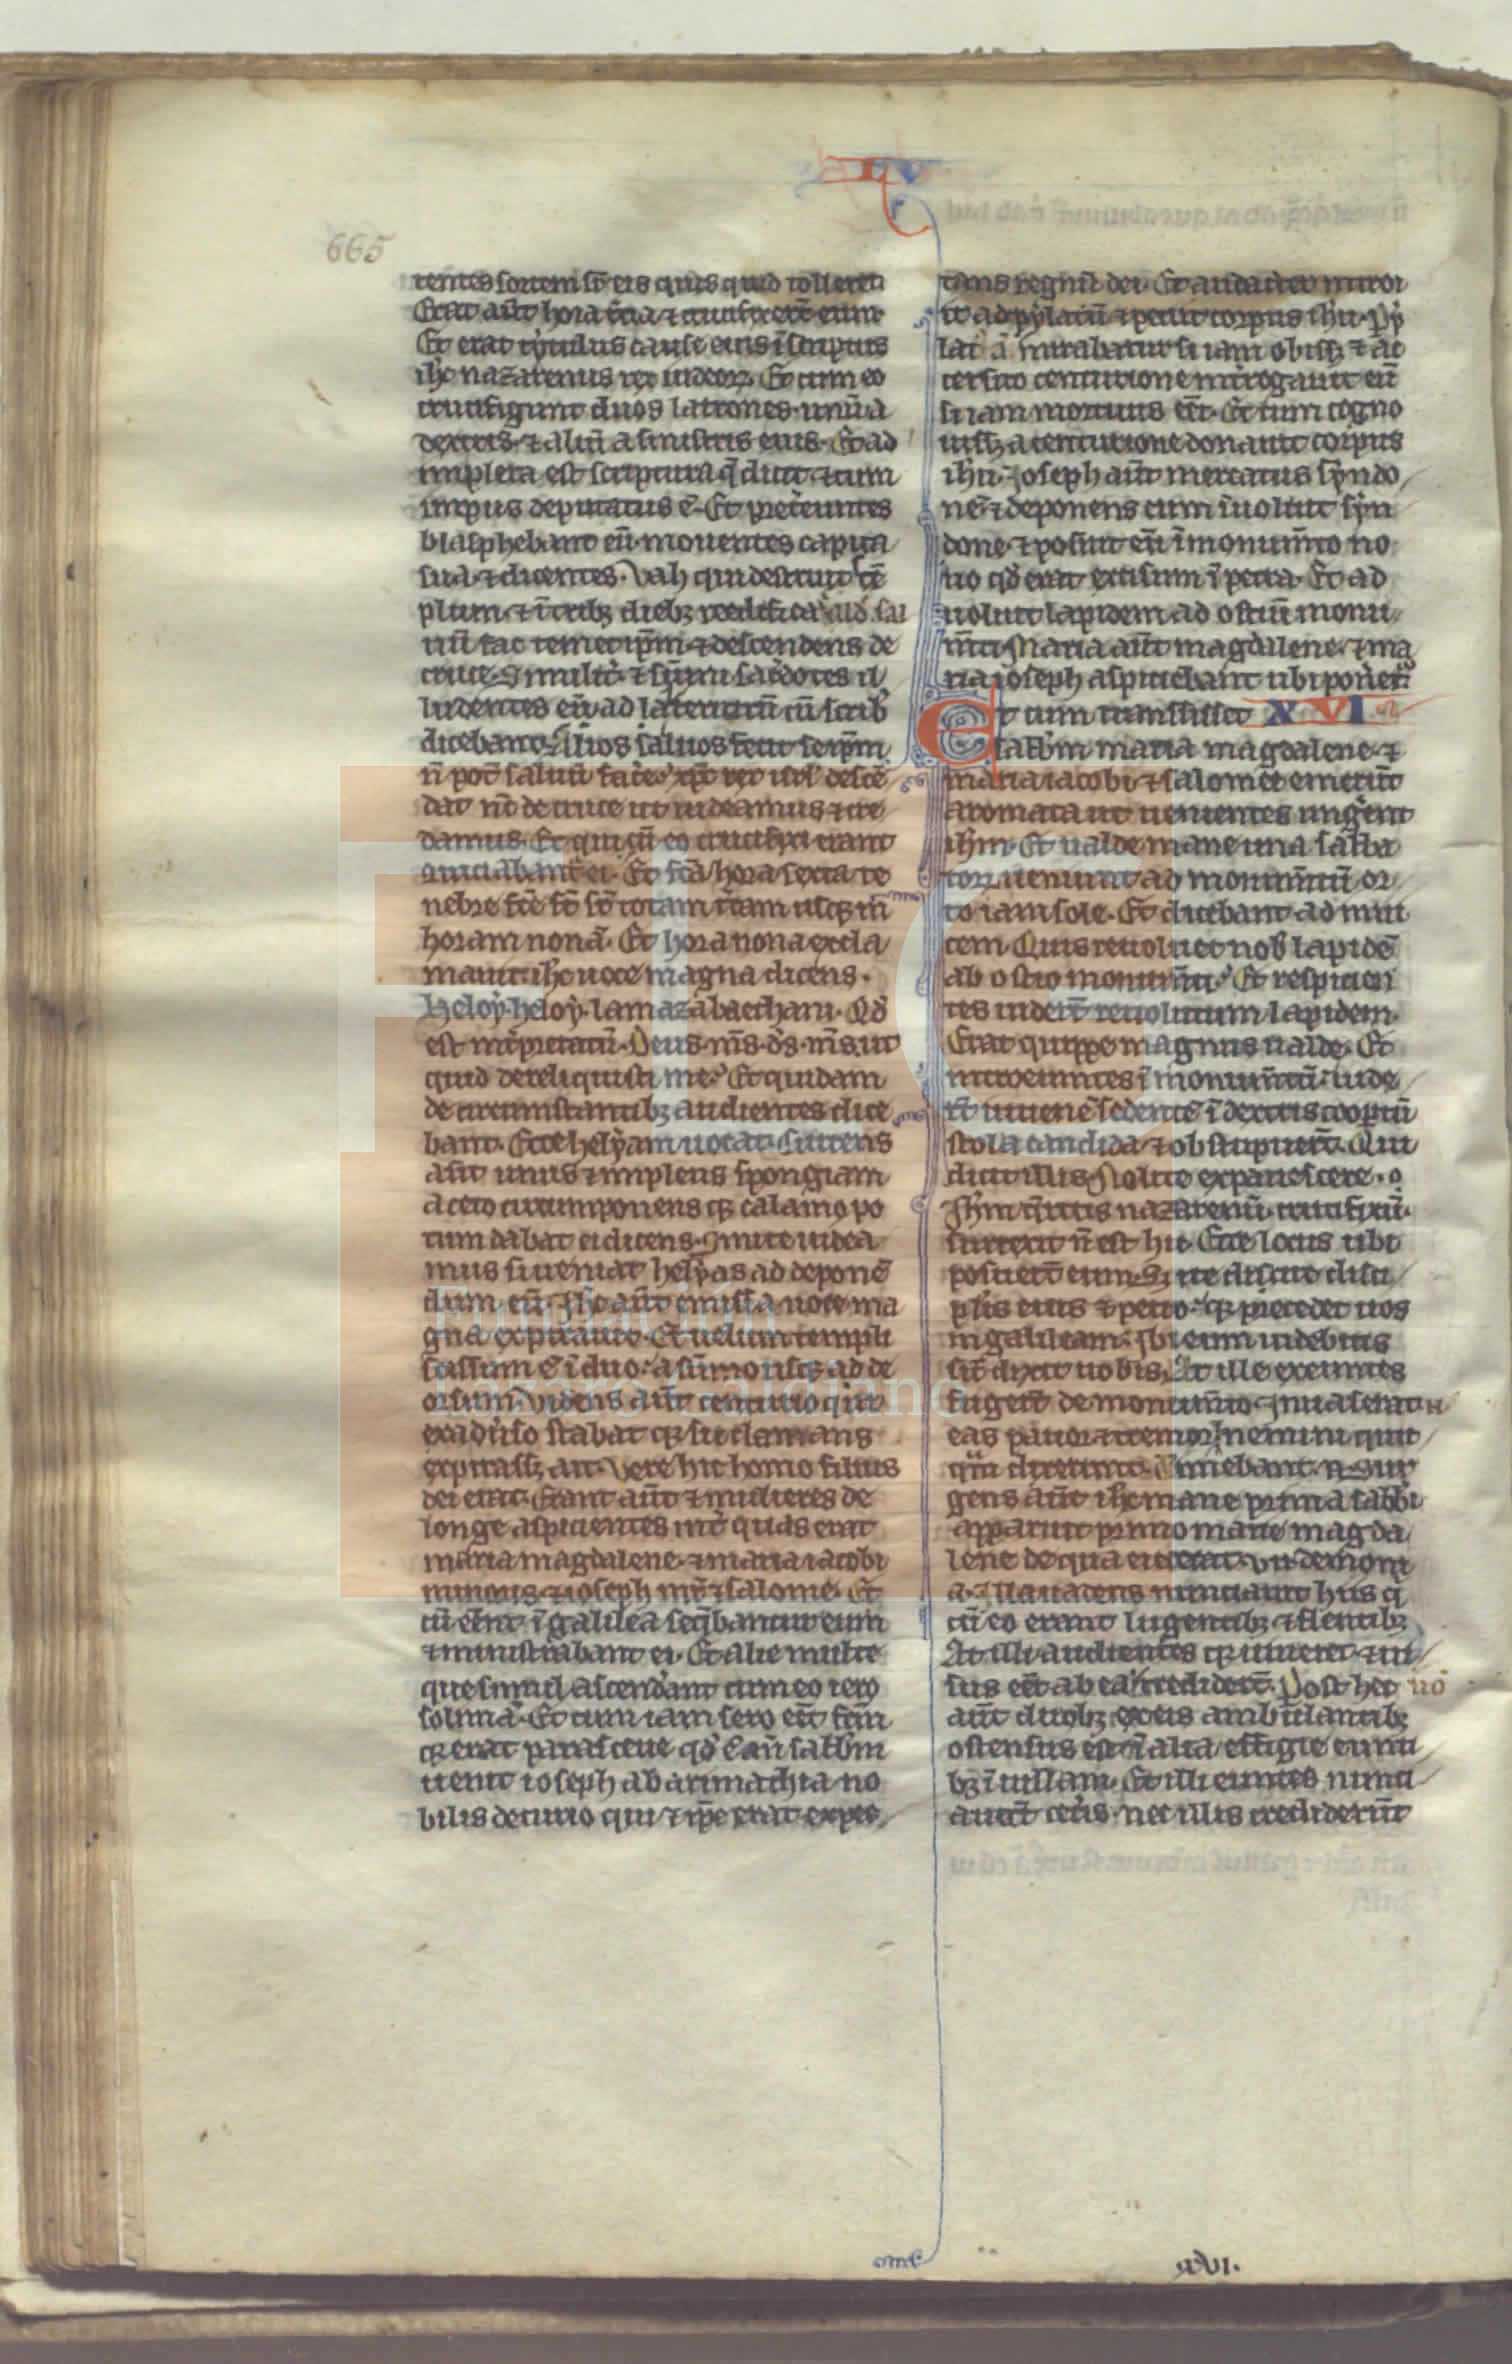 LV
665
tentes sortem sr̄ eis quis quid tolleret
Erat aūt hora t̄cia ⁊ crucifixert̄ eum
Et erat tytulus cause eius īscriptus
ihc nazarenus rex iudeoꝝ. Et cum eo
crucifigunt duos latrones. unū a
dextris. ⁊ aliū a sinistris eius. Et ad
impleta est scriptura q̄ dicit. ⁊ cum
iniquis deputatus ē. Et pretereuntes
blasphebant eū. mouentes capita
sua. ⁊ dicentes. Vah qui destruit tē
plum. ⁊ ī tribꝫ diebꝫ reedificat
uū fac temet ip̄m. ⁊ descendens de
cruce. Similit̓. ⁊ sūmi sac̓dotes il
ludentes eū. ad lateru​trū cū scrib̓
dicebant. Alios saluos fecit se ip̄m
n̄ pot̄ saluū face. xp̄c rex isrl̓ descē
dat nc̄ de cruce ut uideamus ⁊ cre
damus. Et qui cū eo crucifixi erant
cuciabant̓ ei. Et fc̄a hora sexta te
nebre fc̄e st̄ totam t̓ram usqꝫ in
horam nonā. Et hora nona excla
mauit ihc uoce magna dicens.
Heloy. heloy. lamazabacthani. Qd̓
est int̓pretatū. Deus ms̄. ds̄ ms̄. ut
quid dereliquisti me? Et quidam
de circumstantibꝫ audientes dice
bant. Ecce helyam uocat. Currens
aūt unus ⁊ implens spongiam
aceto circumponensqꝫ calamo po
tum dabat ei dicens. Sinite uidea
mus si ueniat helyas ad deponē
dum eū. Ihc aūt emissa uoce ma
gna expirauit. Et uelum templi
scissum ē ī duo. a sūmo usqꝫ ad de
orsum. Videns aūt centurio qui
exadu̓so stabat qꝫ sic clamans
expirassꝫ ait. Vere hic homo filius
dei erat. Erant aūt ⁊ mulieres de
longe aspicientes int̓ quas erat
maria magdalene. ⁊ maria iacobi
minoris. ⁊ ioseph mr̄ ⁊ salome. Et
cū ēent ī galilea seq̄bantur eum
⁊ ministrabant ei. Et alie multe
que simul ascenderant cum eo iero
solima. Et cum iam sero eēt fc̄m
qꝫ erat parasceue qd̓ ē an̄ sabb̓m
uenit ioseph ab arimathia no
bilis decurio qui ⁊ ip̄e erat expec
tans regnū dei. Et audacter introi
it ad pylatū ⁊ petiit corpus ihu. Py
lat̓ mirabatur si iam obissꝫ. ⁊ ac
cersito centurione int̓rogauit eū
si iam mortuus eēt. Et cum cogno
uissꝫ a centurione donauit corpus
ihu. Ioseph aūt mercatus syndo
nē. ⁊ deponens eum īuoluit syn
done. ⁊ posuit eū ī monum̄to no
uo qd̓ erat excisum ī petra. Et ad
uoluit lapidem ad ostiū monu
m̄ti. Maria aūt magdalene. ⁊ ma
ria ioseph aspiciebant ubi poner̄
Et cum transisset XVI
sabb̓m maria magdalene. ⁊
maria iacobi ⁊ salomee emerūt
aromata ut uenientes ungerent
ihm. Et ualde mane una sabba
toꝝ ueniunt ad monum̄tū or
to iam sole. Et dicebant ad inui
cem. Quis reuoluet nob̓ lapidē
ab ostio monum̄ti? Et respicien
tes uidert̄ reuolutum lapidem.
Erat quippe magnus ualde. Et
introeuntes ī monum̄tū. uide
rt̄ iuuenē sedentē ī dextris coopertū
stola candida ⁊ obstupuert̄. Qui
dicit illis. Nolite expauescere.
Ihm q̄ritis nazarenū. crucifixū.
surrexit n̄ est hic. Ecce locus ubi
posuert̄ eum. S̓ ite dicite disci
pl̓is eius ⁊ petro. qꝫ precedet uos
in galileam. Ibi eum uidebitis
sic̄ dixit uobis. At ille exeuntes
fugert̄ de monum̄to. Inuaserat n̄
eas pauor ⁊ tremor. ⁊ nemini quic
q̄m dixerunt. Timebant .n. Sur
gens aūt ihc mane prima sabb̓i
apparuit primo marie magda
lene de qua eiecerat. vii demoni
a. Illa uadens nunciauit hiis q̓
cū eo erant lugentibꝫ ⁊ flentibꝫ
At illi audientes qꝫ uiueret. ⁊ ui
sus eēt ab ea. crediderūt. Post hec nō
aūt duobꝫ ex eis ambulantibꝫ
ostensus est ī alia effigie eunti
bꝫ ī uillam. Et illi euntes nunci
auert̄ cet̓is. nec illis crediderūt
XVI.
Fundación